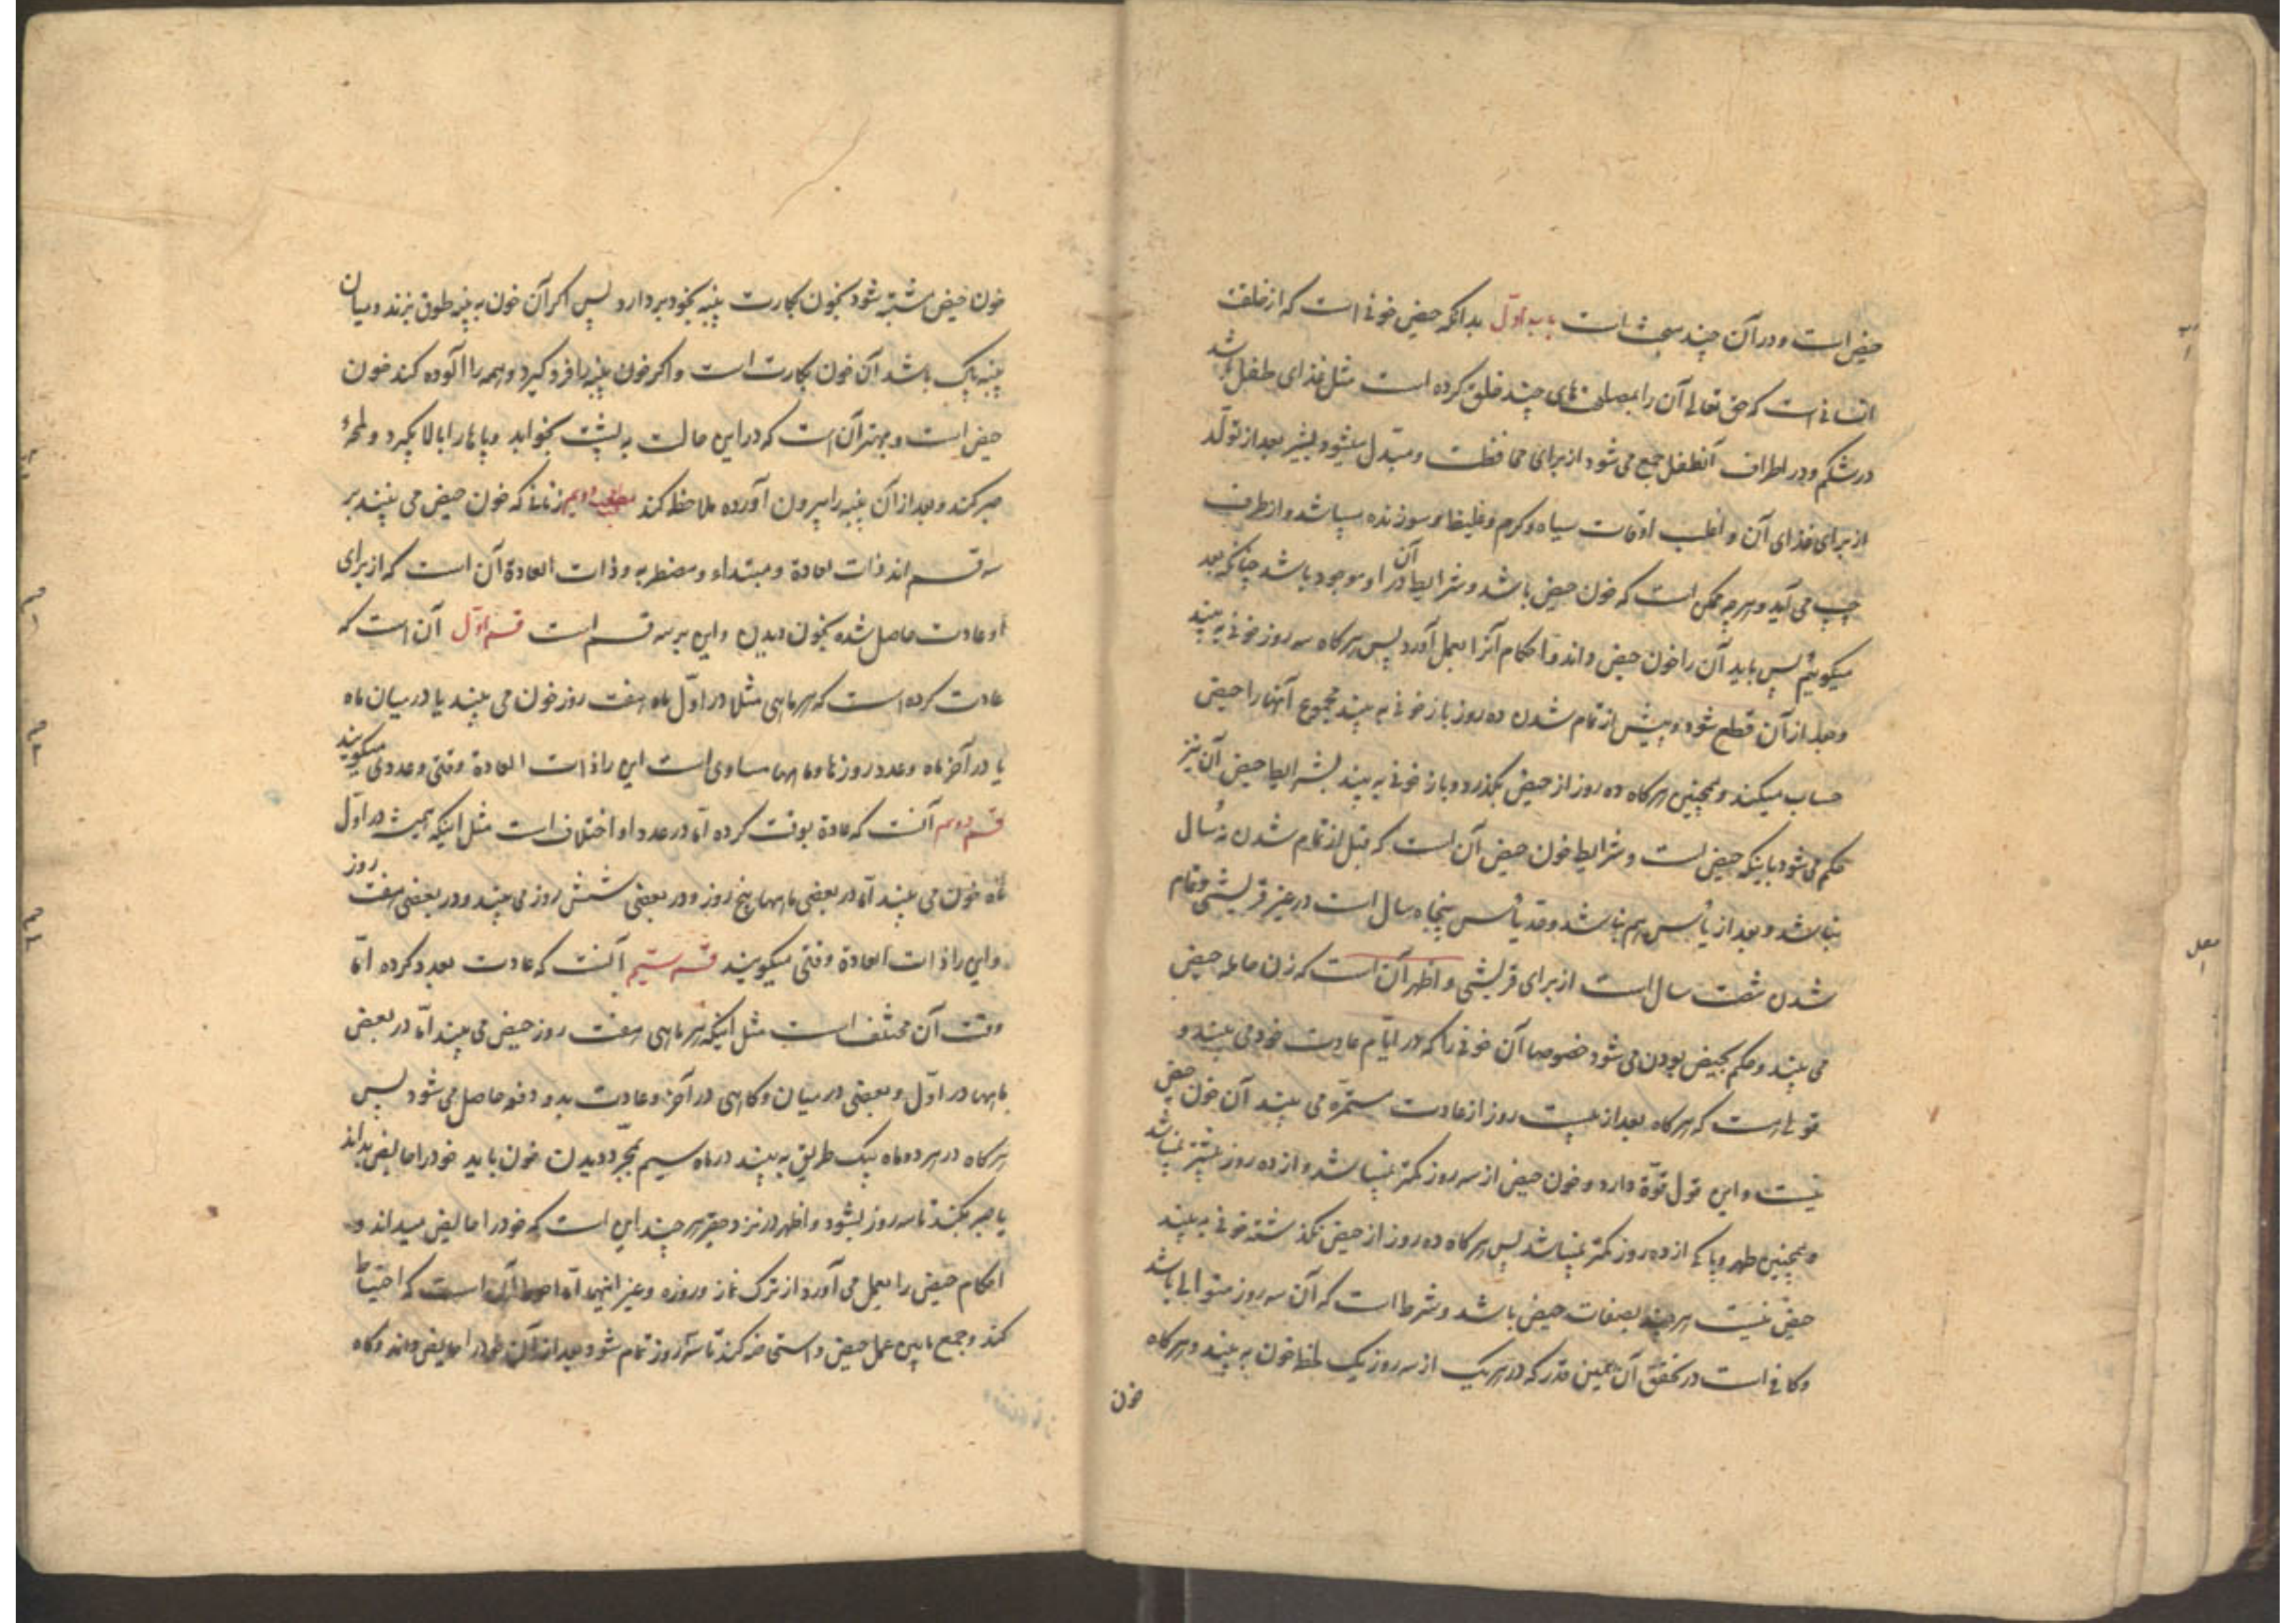 حیض است و در آن چند مبحث است باب اوّل بدانکه حیض خونی است که از خلقت
انسانی است که حق تعالی آن را بمصلحت‌های چند خلق کرده است مثل غذای طفل باشد
در شکم و در اطراف آنطفل جمع می شود از برای محافظت و مبدّل میشود بشیر بعد از تولّد
از برای غذای آن و اغلب اوقات سیاه و گرم و غلیظ و سوزنده میباشد و از طرف
چپ می آید و هرچه ممکن است که خون حیض باشد و شرایط آن در او موجود باشد چنانکه بعد
میگوییم پس باید آن را خون حیض داند و احکام آنرا بعمل آورد پس هرگاه سه روز خونی به بیند
و بعد از آن قطع شود و پیش از تمام شدن ده روز باز خونی به بیند مجموع آنها را حیض
حساب میکند و همچنین هرگاه ده روز از حیض بگذرد و باز خونی به بیند بشرایط حیض آن نیز
حکم می شود باینکه حیض است و شرایط خون حیض آن است که قبل از تمام شدن نه سال
نباشد و بعد از یأس هم نباشد و حد یأس پنجاه سال است در غیر قریشی و تمام
شدن شصت سال است از برای قریشی و اظهر آن است که زن حامله حیض
می بیند و حکم بحیض بودن می شود خصوصا آن خونی را که در ایّام عادت خود می بیند و
قولی است که هرگاه بعد از بیست روز از عادت مستمرّه می بیند آن خون حیض
نیست و این قول قوّة دارد و خون حیض از سه روز کمتر نمیباشد و از ده روز بیشتر نمیباشد
و همچنین طهر و پاکی از ده روز کمتر نمیباشد پس هرگاه ده روز از حیض نگذشته خونی به بیند
حیض نیست هر چند بصفات حیض باشد و شرط است که آن سه روز متوالی باشد
و کافی است در تحقق آن همین قدر که در هر یک از سه روز یک لحظه خون به بیند و هرگاه
خون
خون حیض مشتبه شود بخون بکارت پنبه بخود بردارد پس اگر آن خون به پنبه طوق بزند و میان
پنبه پاک باشد آن خون بکارت است و اگر خون پنبه را فرو گیرد و همه را آلوده کند خون
حیض است و بهتر آن است که در این حالت به پشت بخوابد و پاها را بالا بگیرد و لمحهٔ
صبر کند و بعد از آن پنبه را بیرون آورده ملاحظه کند مطلب دویم زنانی که خون حیض می بینند بر
سه قسم اند ذات العادة و مبتداء و مضطربه و ذات العادة آن است که از برای
او عادت حاصل شده بخون دیدن و این بر سه قسم است قسم اوّل آن است که
عادت کرده است که هر ماهی مثلا در اوّل ماه هفت روز خون می بیند یا در میان ماه
یا در آخر ماه و عدد روزها و ماهها مساوی است این را ذات العادة وقتی و عددی میگویند
قسم دویم آنست که عادة بوقت کرده امّا در عدد او اختلاف است مثل اینکه همیشه در اوّل
ماه خون می بیند امّا در بعضی ماهها پنج روز و در بعضی شش روز می بیند و در بعضی هفت روز
و این را ذات العادة وقتی میگویند قسم سیّم آنست که عادت بعدد کرده امّا
وقت آن مختلف است مثل اینکه هر ماهی هفت روز حیض می بیند امّا در بعضی
ماهها در اوّل و بعضی در میان و گاهی در آخر و عادت بدو دفعه حاصل می شود پس
هرگاه در هر دو ماه بیک طریق به بیند در ماه سیم بمجرّد دیدن خون باید خود را حایض بداند
یا صبر بکند تا سه روز بشود و اظهر در نزد حقیر هر چند این است که خود را حایض میداند و
احکام حیض را بعمل می آورد از ترک نماز و روزه و غیر اینها امّا احوط آن است که احتیاط
کند و جمع مابین عمل حیض و استحاضه کند تا سه روز تمام شود بعد از آن خود را حایض داند و گاه